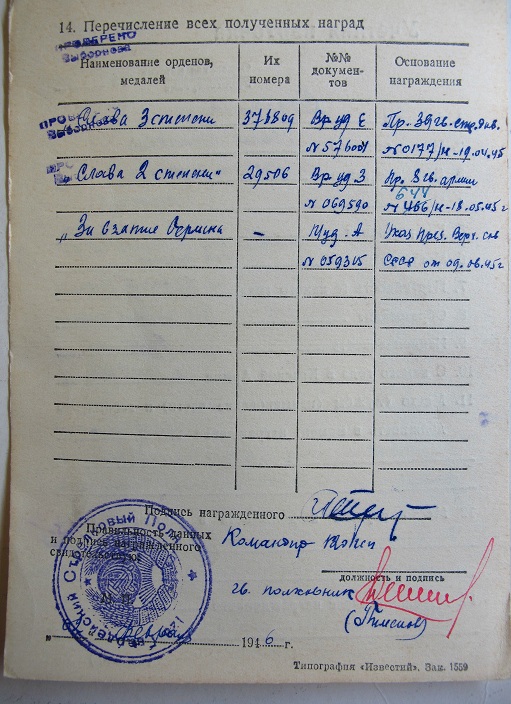 14. Перечисление всех полученных наград
ПРОВЕРЕНО
Выборнова
Наименование орденов, медалей
Их номера
№№ документов
Основание награждения
Слава 3 степени 378809 Вр уд Е Пр. 39 гв. стр. див.
N 576001 N 0177/н-19.04.45
„Слава 2 степени" 29506 Вр уд З Пр. 8 гв. армии
644
N 069590 N 466/н-18.05.45 г
„За взятие Берлина — Цуд. А Указ През. Верх. сов
N 059315 СССР от 09.06.45 г
Подпись награжденного
Правильность данных
и подписи награжденного
свидетельствую:
Командир
должность и подпись
гв. полковник
М. П.
Стрелковый Полк
1946 г.
Типография «Известий». Зак. 1559